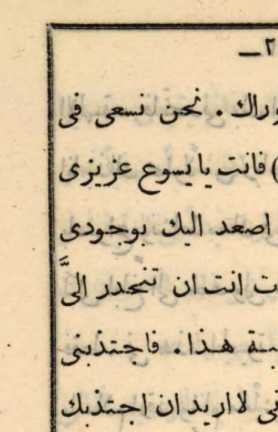 ٢ـ
وراك . نحن نسعى فى
) فانت يا يسوع عزيزى
اصعد اليك بوجودى
انت ان تنحدر الىَّ
هذا . فاجتذبنى
لا اريد ان اجتذبك